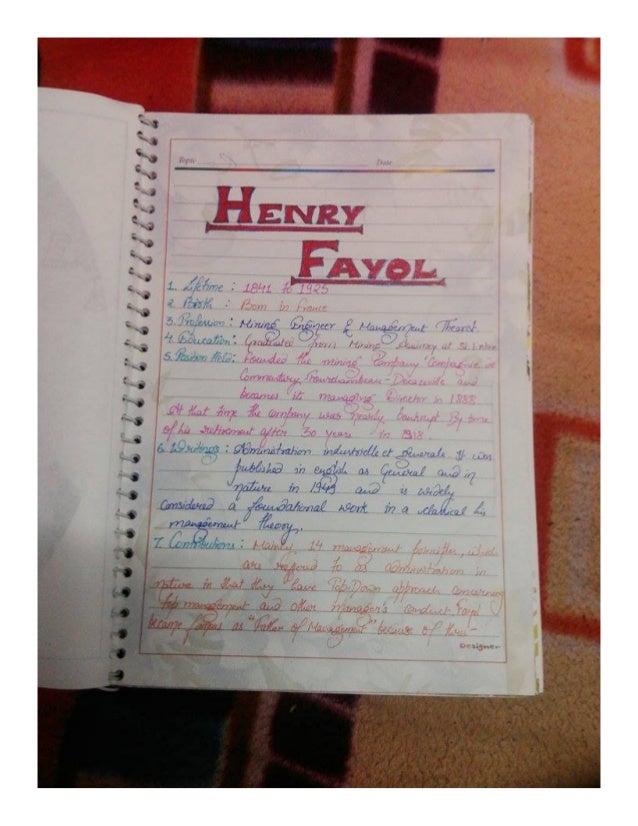 Topic
Date
HENRY
FAYOL
1. Lifetime : 1841 to 1925
2. Birth : Born in France
3. Profession : Mining Engineer & Management Theorist
4. Education : Graduated from Mining at St.
5. Position Held : Founded the mining Company Compagnie de
Commentary, - Decazeville and
becames its managing Director in 1888
At that time the company was nearly bankrupt By time
of his retirement after 30 years in 1918.
6. Writings : Administration industrielle et generale It was
published in english as General and in
nature in 1949 and is widely
Considered a foundational work in a classical his
management theory.
7. Contributions : Mainly, 14 management which
are refered to as administration in
nature in that they have Top-Down approach concerning
top management and other manager's conduct. Fayol
became famous as "Father of Management" because of
Designer